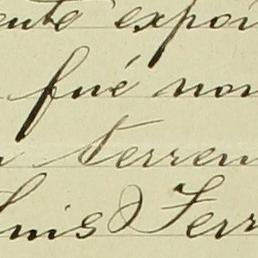 ente expo
fué nom
terren
Luis Ferr